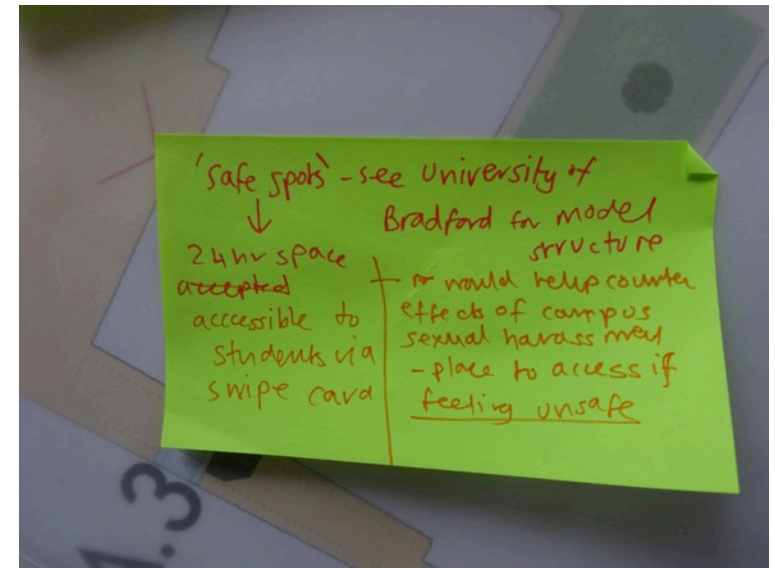 'safe spots' - see University of
Bradford for model
structure
↓
24hr space
accepted
accessible to
students via
swipe card
would help counter
effects of campus
sexual harassment
- place to access if
feeling unsafe
4.3